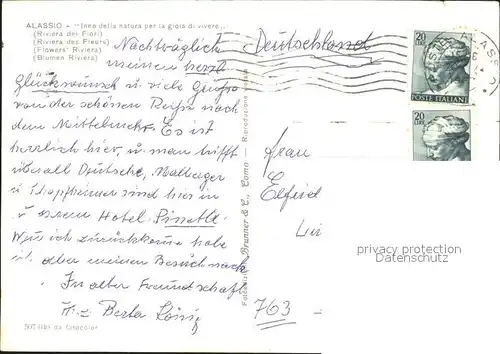 ALASSIO - "Inno della natura per la gioia di vivere"
(Riviera dei Fiori)
(Riviera des Fleurs)
(Flowers' Riviera)
(Blumen Riviera)
Nachträglich
meinen herzl.
Glückwunsch u. viele Grüße
von der schönen Reise nach
dem Mittelmeer. Es ist
herrlich hier, u. man trifft
überall Deutsche,
u. Schopfheimer sind hier in
unserem Hotel
Wenn ich zurückkomme hole
ich aber meinen Besuch nach
In alter Freundschaft
Berta
507-(ib) da fotocolor
Brunner & C., Como - Riproduzione vietata
Deutschland
20
LIRE
POSTE ITALIANE
20
LIRE
ALASSIO
Frau
Elfrid
privacy protection
Datenschutz
763